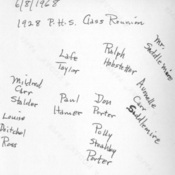 6/8/1968
1928 P.H.S. Class Reunion
Mr.
Saddlemire
Lafe
Taylor
Ralph
Hobstetter
Mildred
Carr
Stalder
Paul
Hamer
Don
Porter
Carr
Saddlemire
Louise
Ross
Polly
Porter